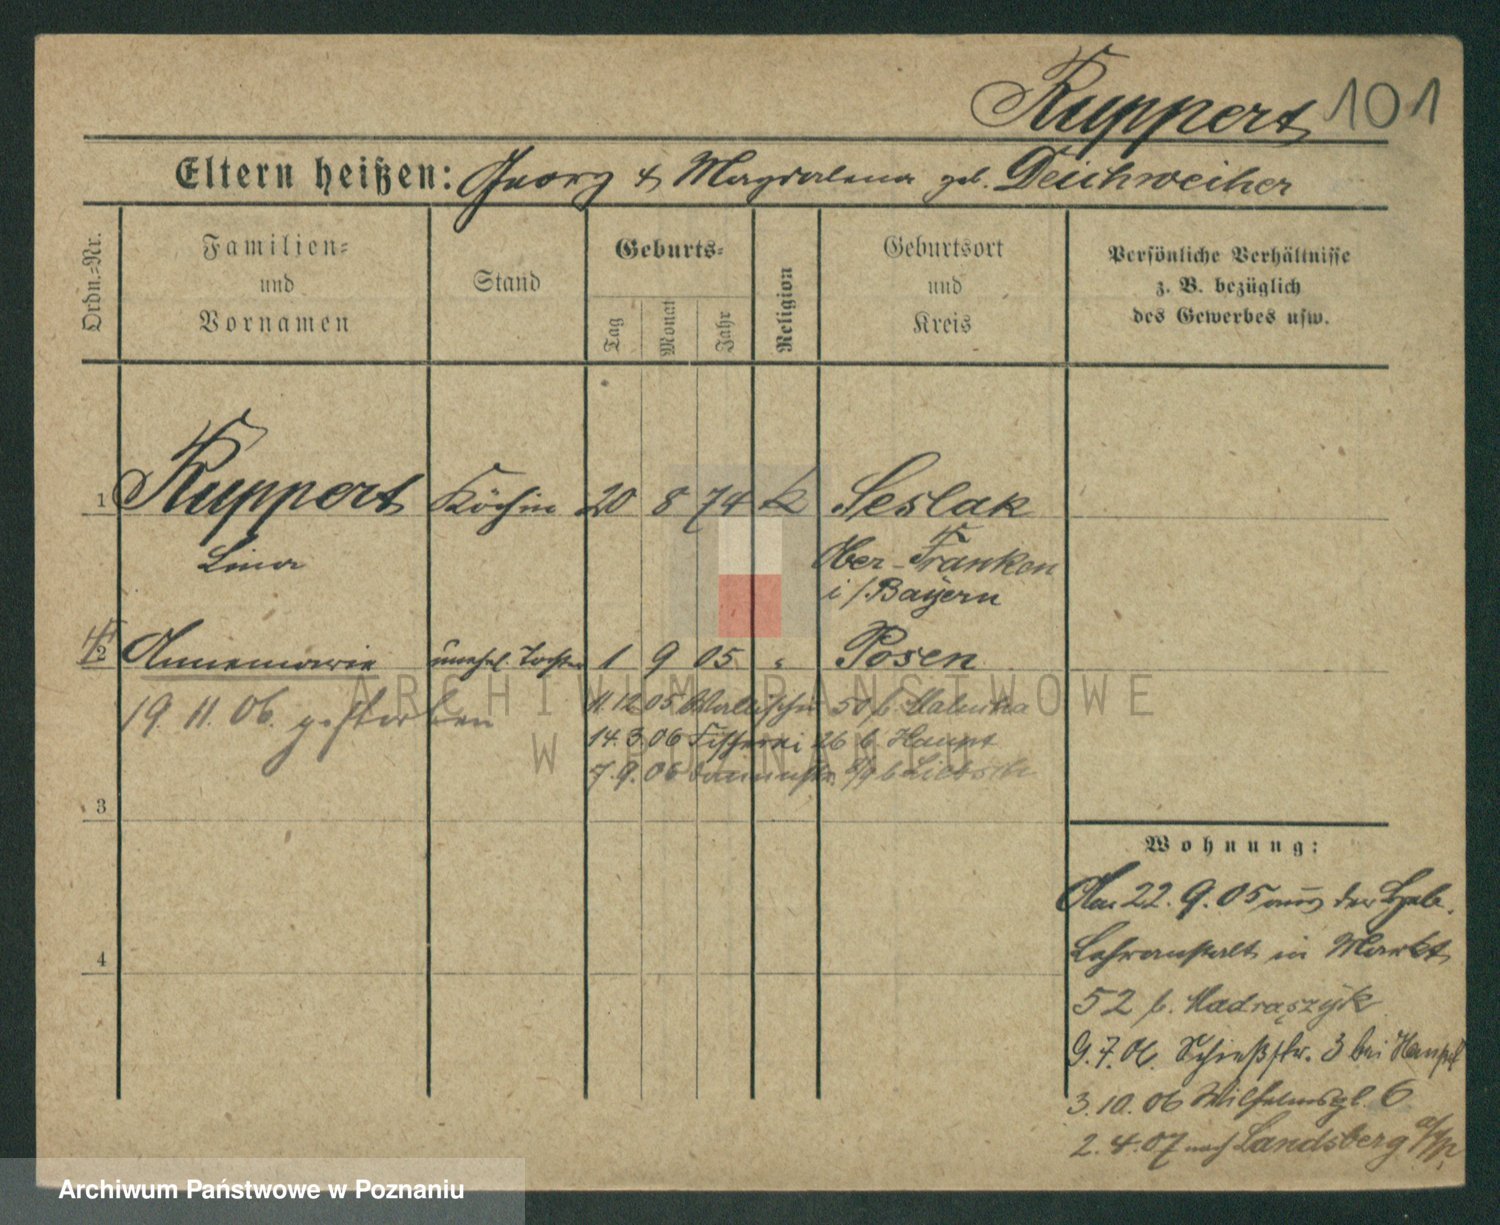 Ruppert 101
Eltern heißen: Georg & Magdalena geb. Deichweiher
Ordn.=Nr.
Familien=
und
Vornamen
Stand
Geburts=
Tag
Monat
Jahr
Religion
Geburtsort
und
Kreis
Persönliche Verhältnisse
z. B. bezüglich
des Gewerbes usw.
1 Ruppert Köchin 20 8 74 k Seslak
Lina Ober-Franken
i/Bayern
2 Annemarie unehel. Tochter 1 9 05 " Posen
19. 11. 06. gestorben
11.12.05 Wallischei 50 b.
14.3.06 Fischerei 26 b. Haupt
7.9.06
3
4
Wohnung:
22. 9. 05 aus der Heb.
Lehranstalt in Markt
52 b. Madraszyk
9. 7. 06. Schießstr. 3 bei
3. 10. 06 Wilhelmspl. 6
2. 4. 07 nach Landsberg a/W.
ARCHIWUM PAŃSTWOWE
W POZNANIU
Archiwum Państwowe w Poznaniu